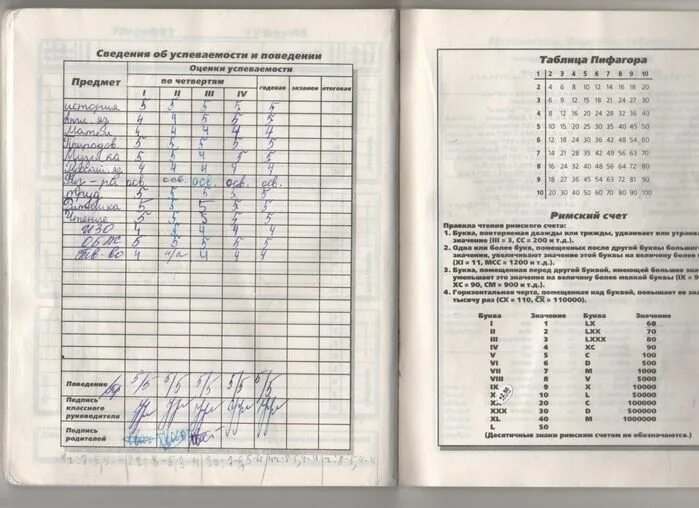 Сведения об успеваемости и поведении
Предмет
Оценки успеваемости
по четвертям
I II III IV годовая экзамен итоговая
история 5 5 5 5 5
4 4 5 5 5
Матем 4 4 4 4 4
Природов. 5 5 5 5 5
Музыка 5 5 4 5 5
Русский яз 4 4 4 4 4
Физ-ра осв. осв. осв. осв. осв.
Труд 5 5 5 5 5
Риторика 5 5 5 5 5
Чтение 5 5 5 5 5
ИЗО 4 5 4 4 4
ОБЖ 5 5 5 5 5
4 н/а 4 4 4
Поведение 5/5 5/5 5/5 5/5 5/5
Подпись
классного
руководителя
Подпись
родителей
Таблица Пифагора
1 2 3 4 5 6 7 8 9 10
2 4 6 8 10 12 14 16 18 20
3 6 9 12 15 18 21 24 27 30
4 8 12 16 20 24 28 32 36 40
5 10 15 20 25 30 35 40 45 50
6 12 18 24 30 36 42 48 54 60
7 14 21 28 35 42 49 56 63 70
8 16 24 32 40 48 56 64 72 80
9 18 27 36 45 54 63 72 81 90
10 20 30 40 50 60 70 80 90 100
Римский счет
Правила чтения римского счета:
1. Буква, повторяемая дважды или трижды, удваивает или утраи
значение (III = 3, CC = 200 и т.д.).
2. Одна или более букв, помещенных после другой буквы больше
значения, увеличивают значение этой буквы на величину более м
(XI = 11, MCC = 1200 и т.д.).
3. Буква, помещенная перед другой буквой, имеющей большее зна
уменьшает это значение на величину более мелкой буквы (IX = 9
XC = 90, CM = 900 и т.д.).
4. Горизонтальная черта, помещенная над буквой, повышает ее зн
тысячу раз (CX = 110, C̅X̅ = 110000).
Буква Значение Буква Значение
I 1 LX 60
II 2 LXX 70
III 3 LXXX 80
IV 4 XC 90
V 5 C 100
VI 6 D 500
VII 7 M 1000
VIII 8 V 5000
IX 9 X 10000
X 10 L 50000
20 C 100000
XXX 30 D 500000
XL 40 M 1000000
L 50
(Десятичные знаки римским счетом не обозначаются.)